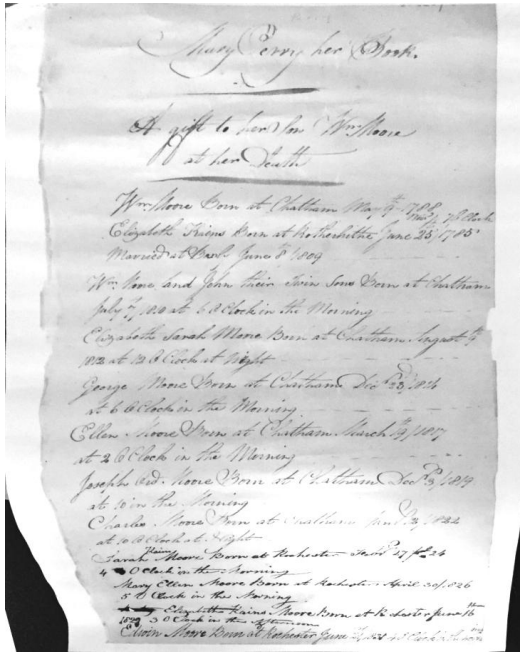 Mary Perry her Book.
A gift to her Son Wm Moore
at her Death
Wm Moore Born at Chatham May 1788
Elizabeth Kains Born at Rotherhithe June 25th 1785
Married at June 8th 1809
Wm Moore and John their twin Sons Born at Chatham
July 1810 at 6 O Clock in the Morning
Elizabeth Sarah Moore Born at Chatham August
1812 at 12 O Clock at Night
George Moore Born at Chatham Decr 23d 1814
at 6 O Clock in the Morning
Ellen Moore Born at Chatham March 1817
at 2 O Clock in the Morning
Joseph Moore Born at Chatham Decr 1819
at 10 in the Morning
Charles Moore Born at Chatham 1822
at 10 O Clock at Night
Sarah Kains Moore Born at Rochester 27
4 O Clock in the Morning
Mary Ellen Moore Born at Rochester April 30 1826
5 O Clock in the Morning
Elizabeth Kains Moore Born at Rochester June 16
3 O Clock in the Afternoon
Edwin Moore Born at Rochester June